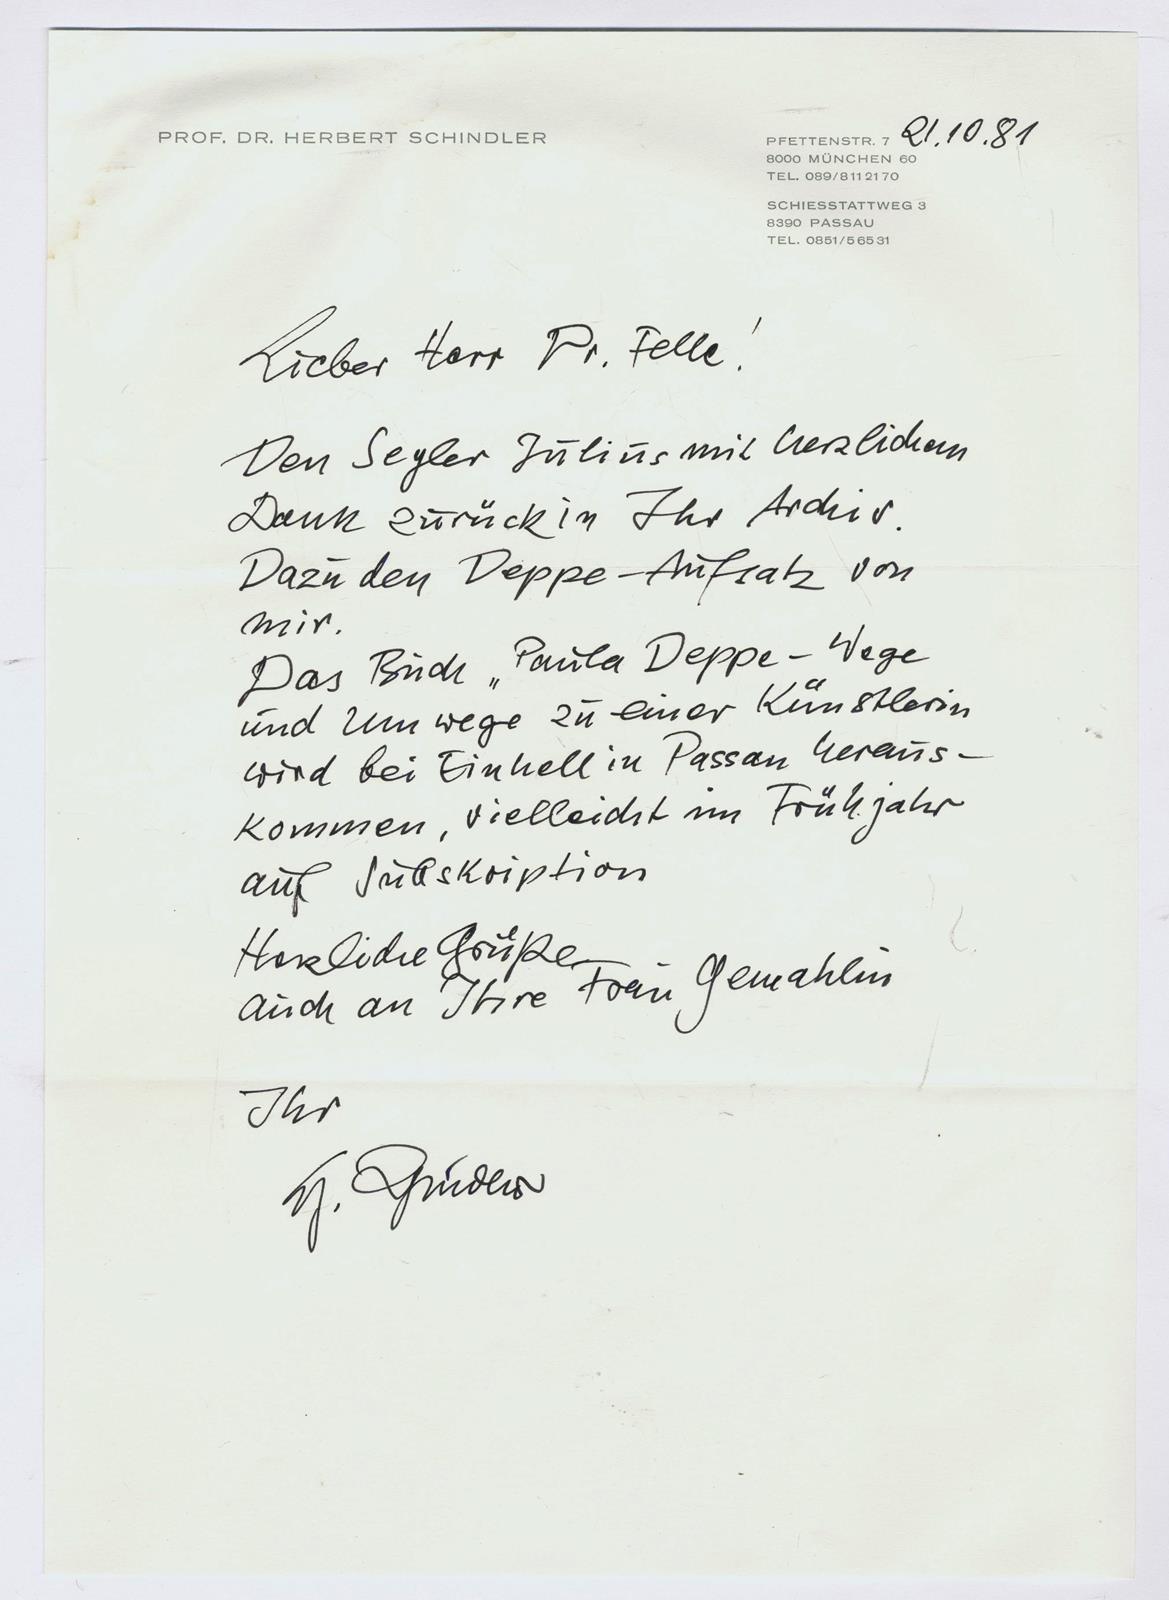 PROF. DR. HERBERT SCHINDLER
PFETTENSTR. 7 21.10.81
8000 MÜNCHEN 60
TEL. 089/8112170
SCHIESSTATTWEG 3
8390 PASSAU
TEL. 0851/56531
Lieber Herr Dr. Felle!
Den Seyler Julius mit herzlichem
Dank zurück in Ihr Archiv.
Dazu den Deppe-Aufsatz von
mir.
Das Buch „Paula Deppe - Wege
und Umwege zu einer Künstlerin
wird bei Einhell in Passau heraus-
kommen, vielleicht im Frühjahr
auf Subskription
Herzliche Grüße
auch an Ihre Frau Gemahlin
Ihr
H. Schindler